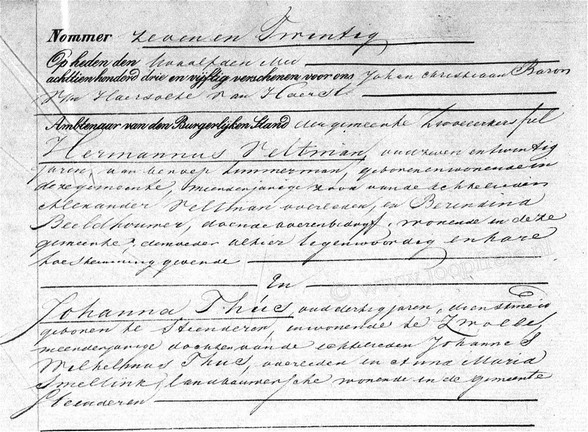 Nommer zeven en Twintig
Op heden den twaalfden Mei
achttienhonderd drie en vijftig verschenen voor ons Johan Christiaan Baron
van Haersolte van Haerst
Ambtenaar van den Burgerlijken Stand der gemeente Zwollerkerspel
Hermannus Veltman, oud zeven en twintig
jaren, van beroep timmerman, geboren en wonende in
deze gemeente, meerderjarige zoon van de echtelieden
Alexander Veltman overleden, en Berendina
Beeldhouwer, doende boerenbedrijf, wonende in deze
gemeente, de moeder alhier tegenwoordig en hare
toestemming gevende
En
Johanna Thüs oud dertig jaren, dienstmeid
geboren te Steenderen, en wonende te Zwolle,
meerderjarige dochter van de echtelieden Johannes
Wilhelmus Thus, overleden en Anna Maria
Smellink, landbouwersche wonende in de gemeente
Steenderen